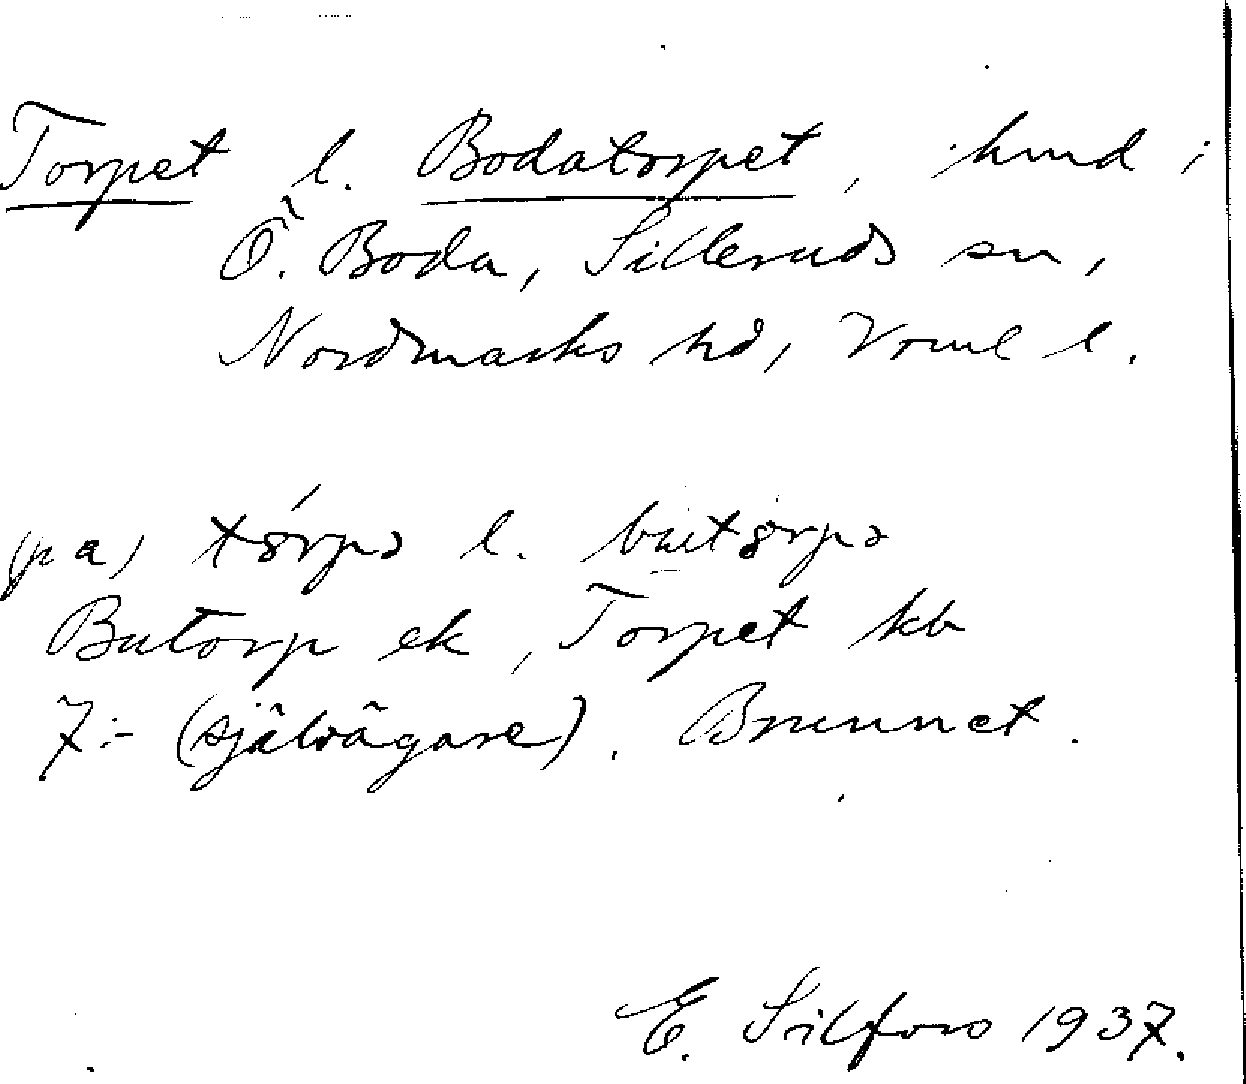 Torpet l. Bodatorpet, hmd i
Ö. Boda, Silleruds sn,
Nordmarks hd, Vrml l.
(pa) tǿrpə l. butørpə
Butorp ek, Torpet kb
7:- (självägare). Brunnet.
E. Silfors 1937.